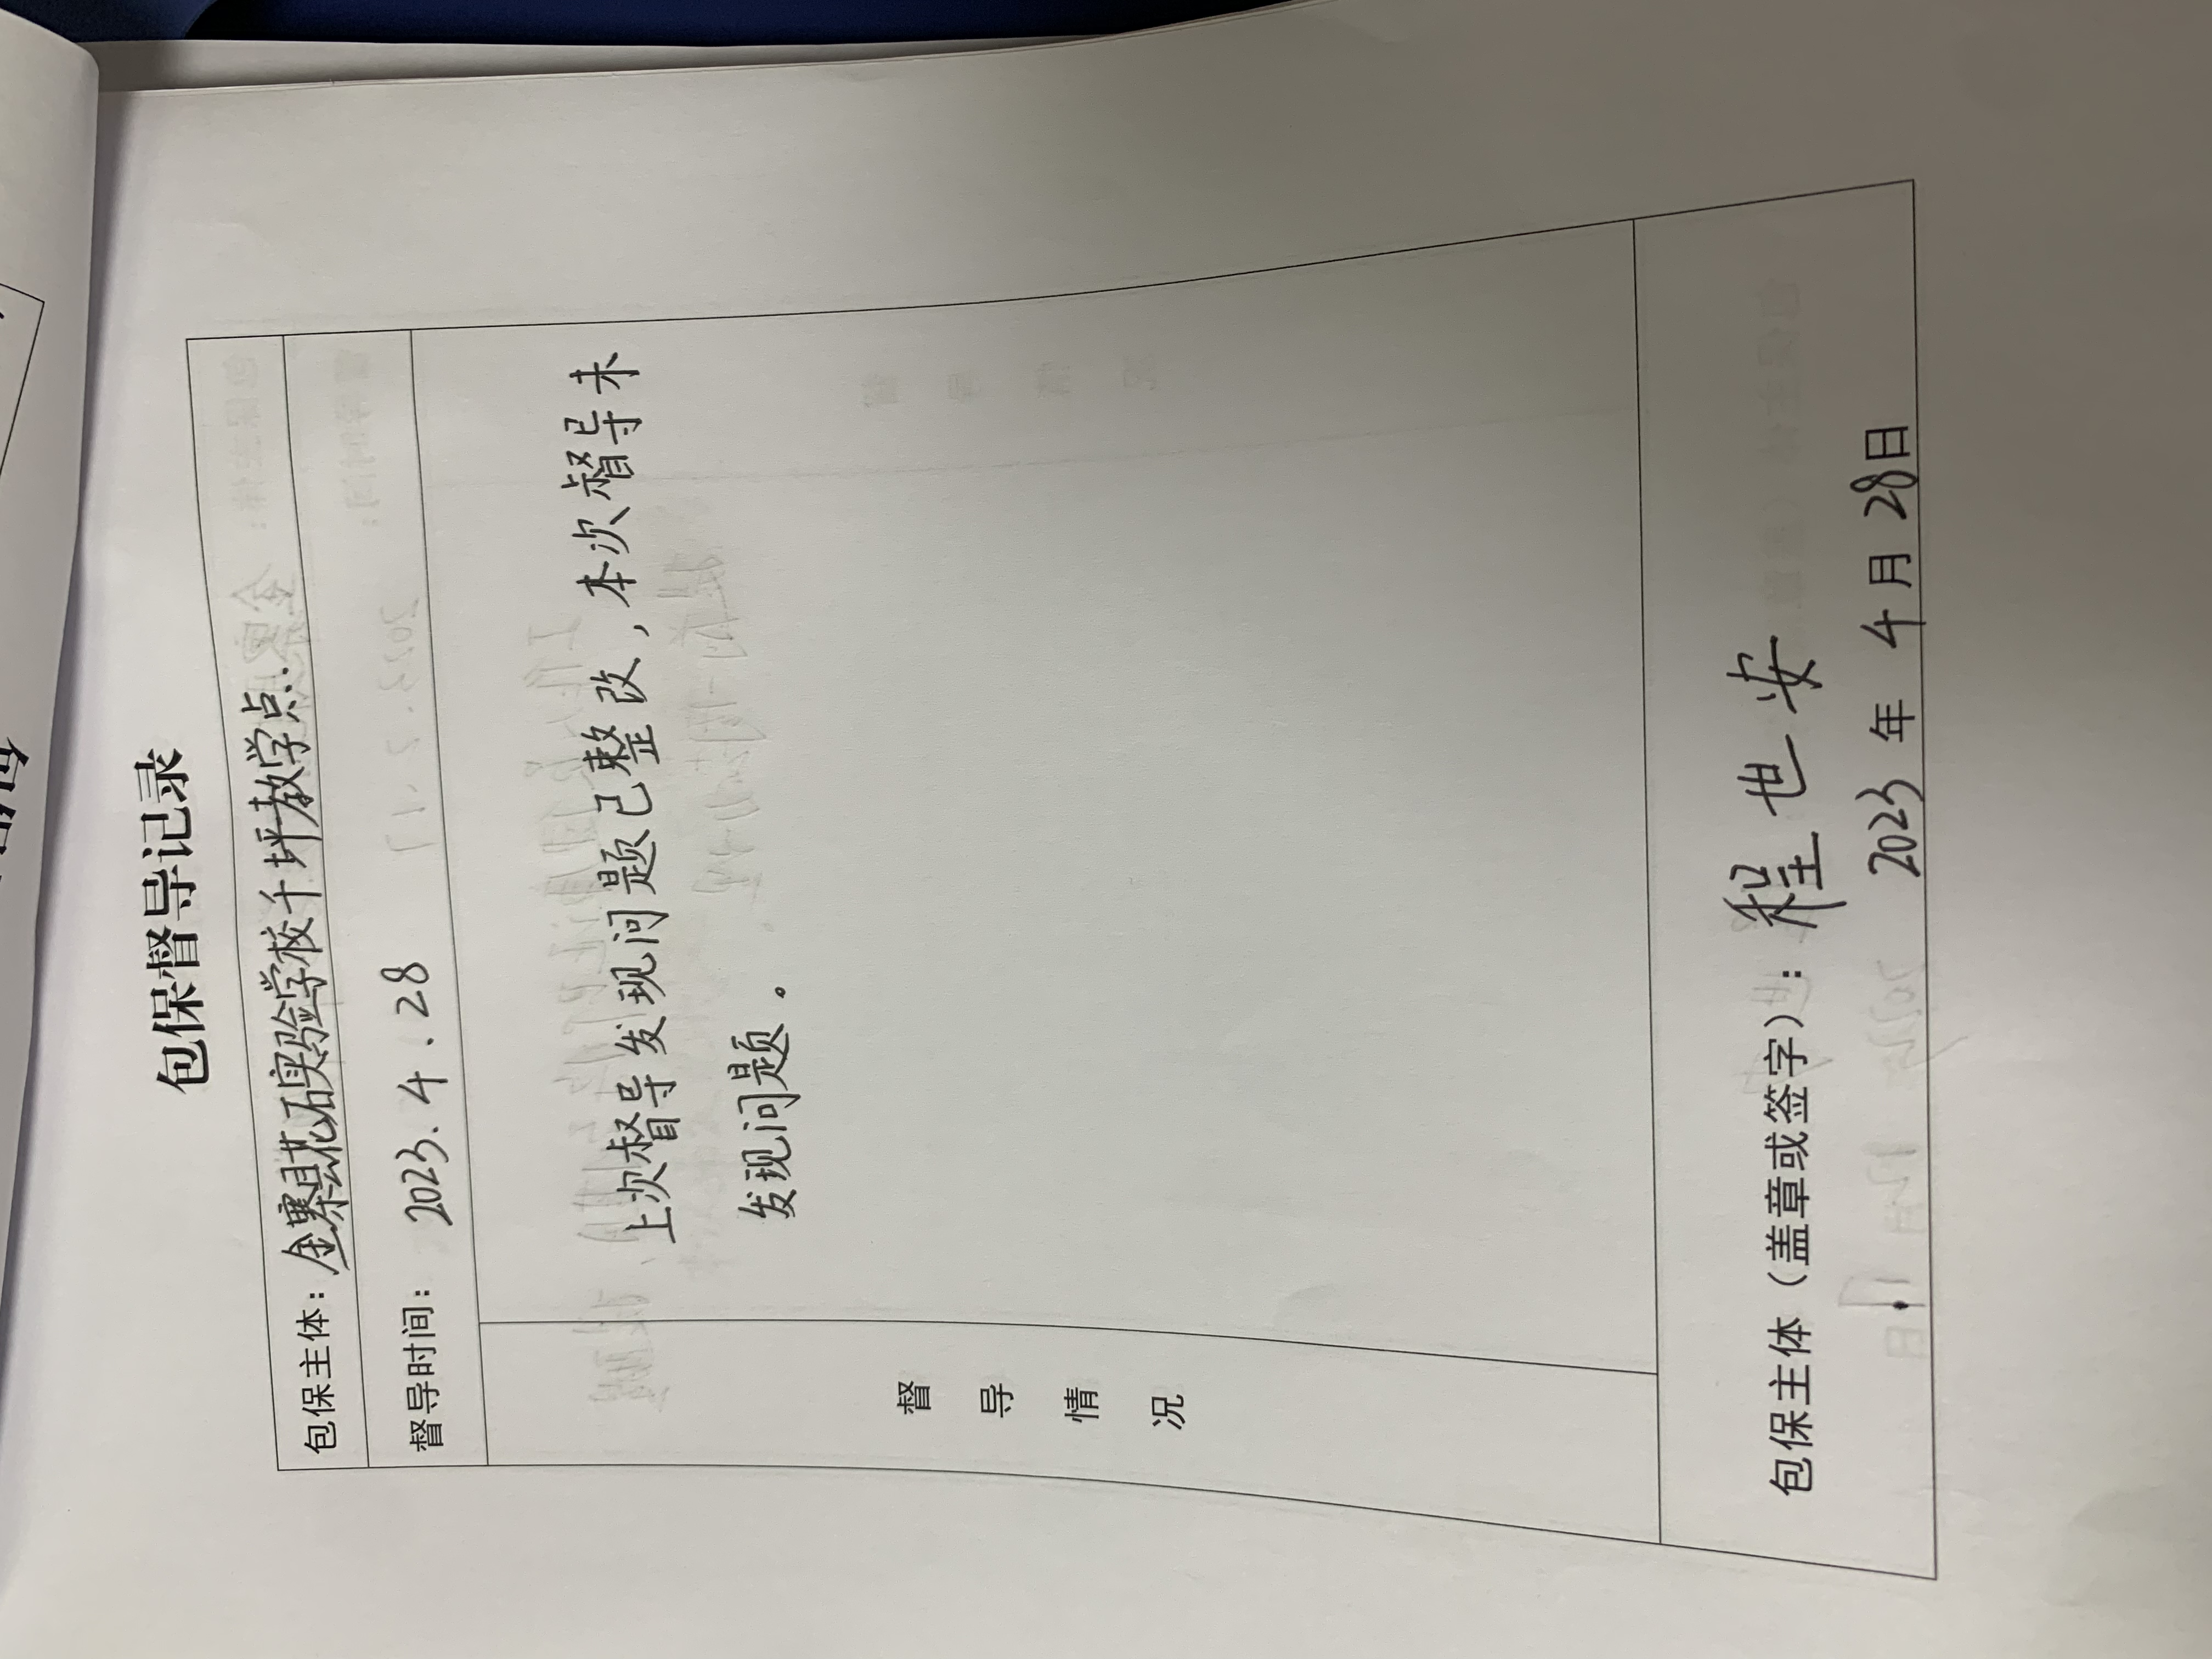 包保督导记录
包保主体：金寨县花石实验学校千坪教学点.
督导时间：2023.4.28
督导情况
上次督导发现问题已整改，本次督导未
发现问题。
包保主体（盖章或签字）：程世安
2023年4月28日